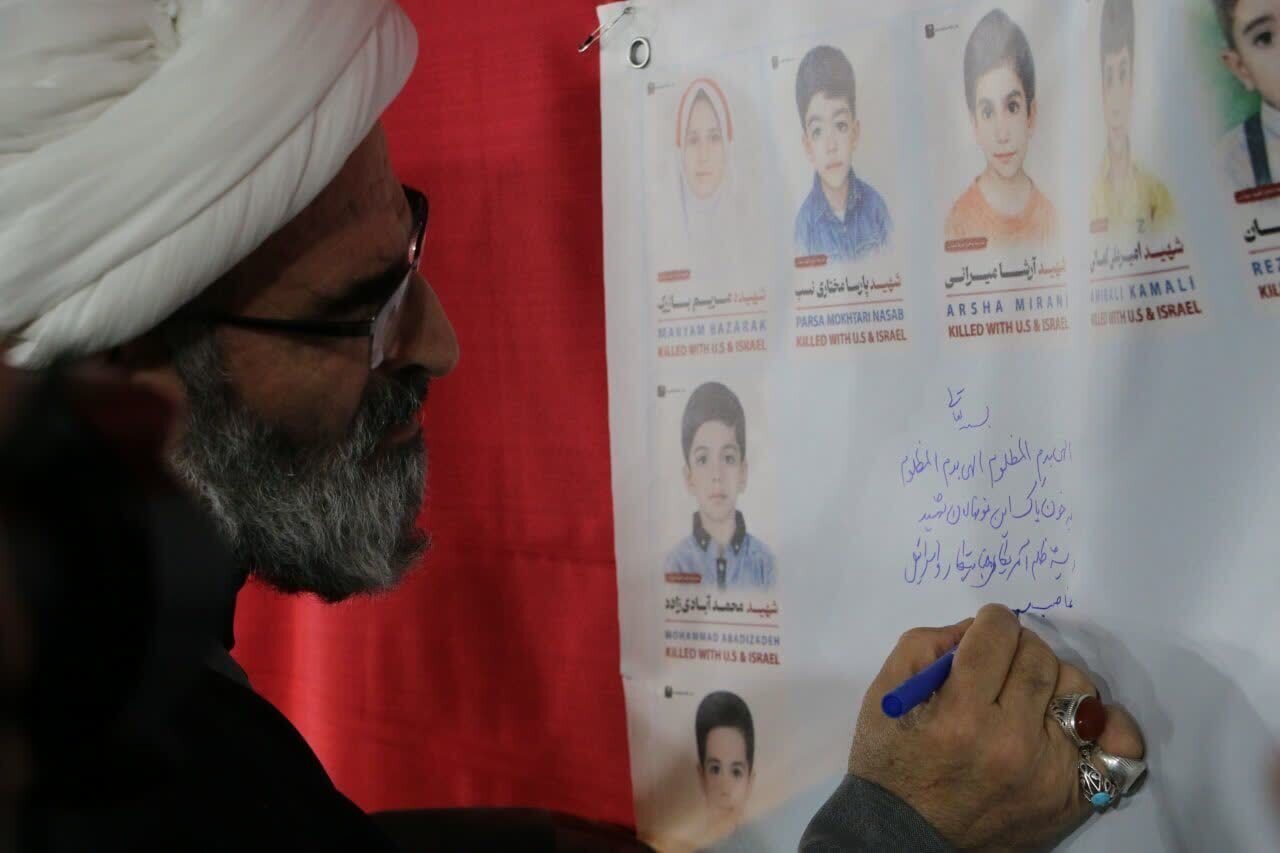 شهیده مریم بازرک
MARYAM BAZARAK
KILLED WITH U.S & ISRAEL
شهید پارسا مختاری نسب
PARSA MOKHTARI NASAB
KILLED WITH U.S & ISRAEL
شهید آرشا میرانی
ARSHA MIRANI
KILLED WITH U.S & ISRAEL
شهید امیرعلی کمالی
AMIRALI KAMALI
KILLED WITH U.S & ISRAEL
ـان
REZ
KILLE
شهید محمد آبادی‌زاده
MOHAMMAD ABADIZADEH
KILLED WITH U.S & ISRAEL
بسمه تعالی
الهی بدم المظلوم الهی بدم المظلوم
به خون پاک این نونهالان شهید
ریشه ظلم آمریکای جنایتکار و اسرائیل
غاصب